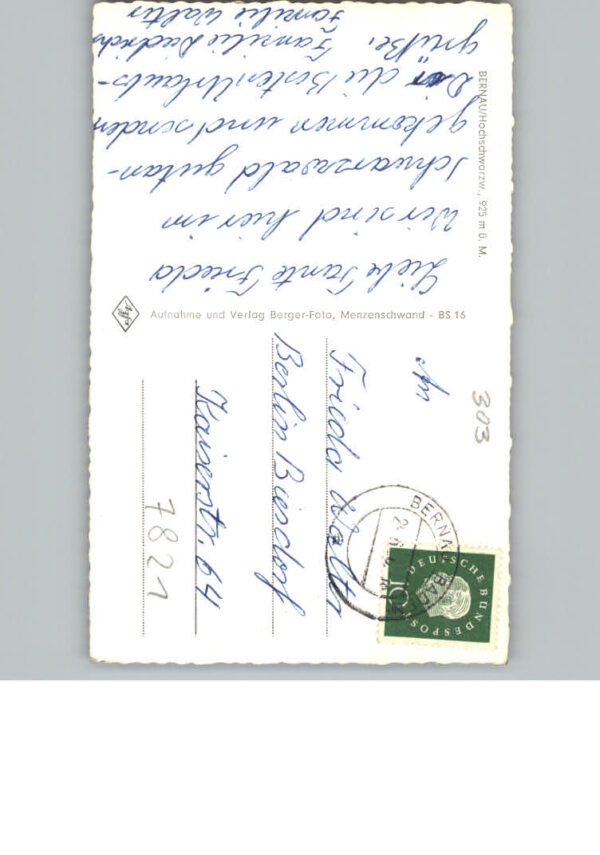 BERNAU/Hochschwarzw., 925 m ü. M.
Liebe Tante Frieda
Wir sind hier im
Schwarzwald gutan-
gekommen und senden
Dir die Besten Urlaubs-
grüße.
Familie Diedrich
Familie Walter
Agfa
Aufnahme und Verlag Berger-Foto, Menzenschwand - BS 16
303
An
Frieda Walter
Berlin Biesdorf
Kaiserstr. 64
7821
BERNAU
DEUTSCHE BUNDESPOST
10